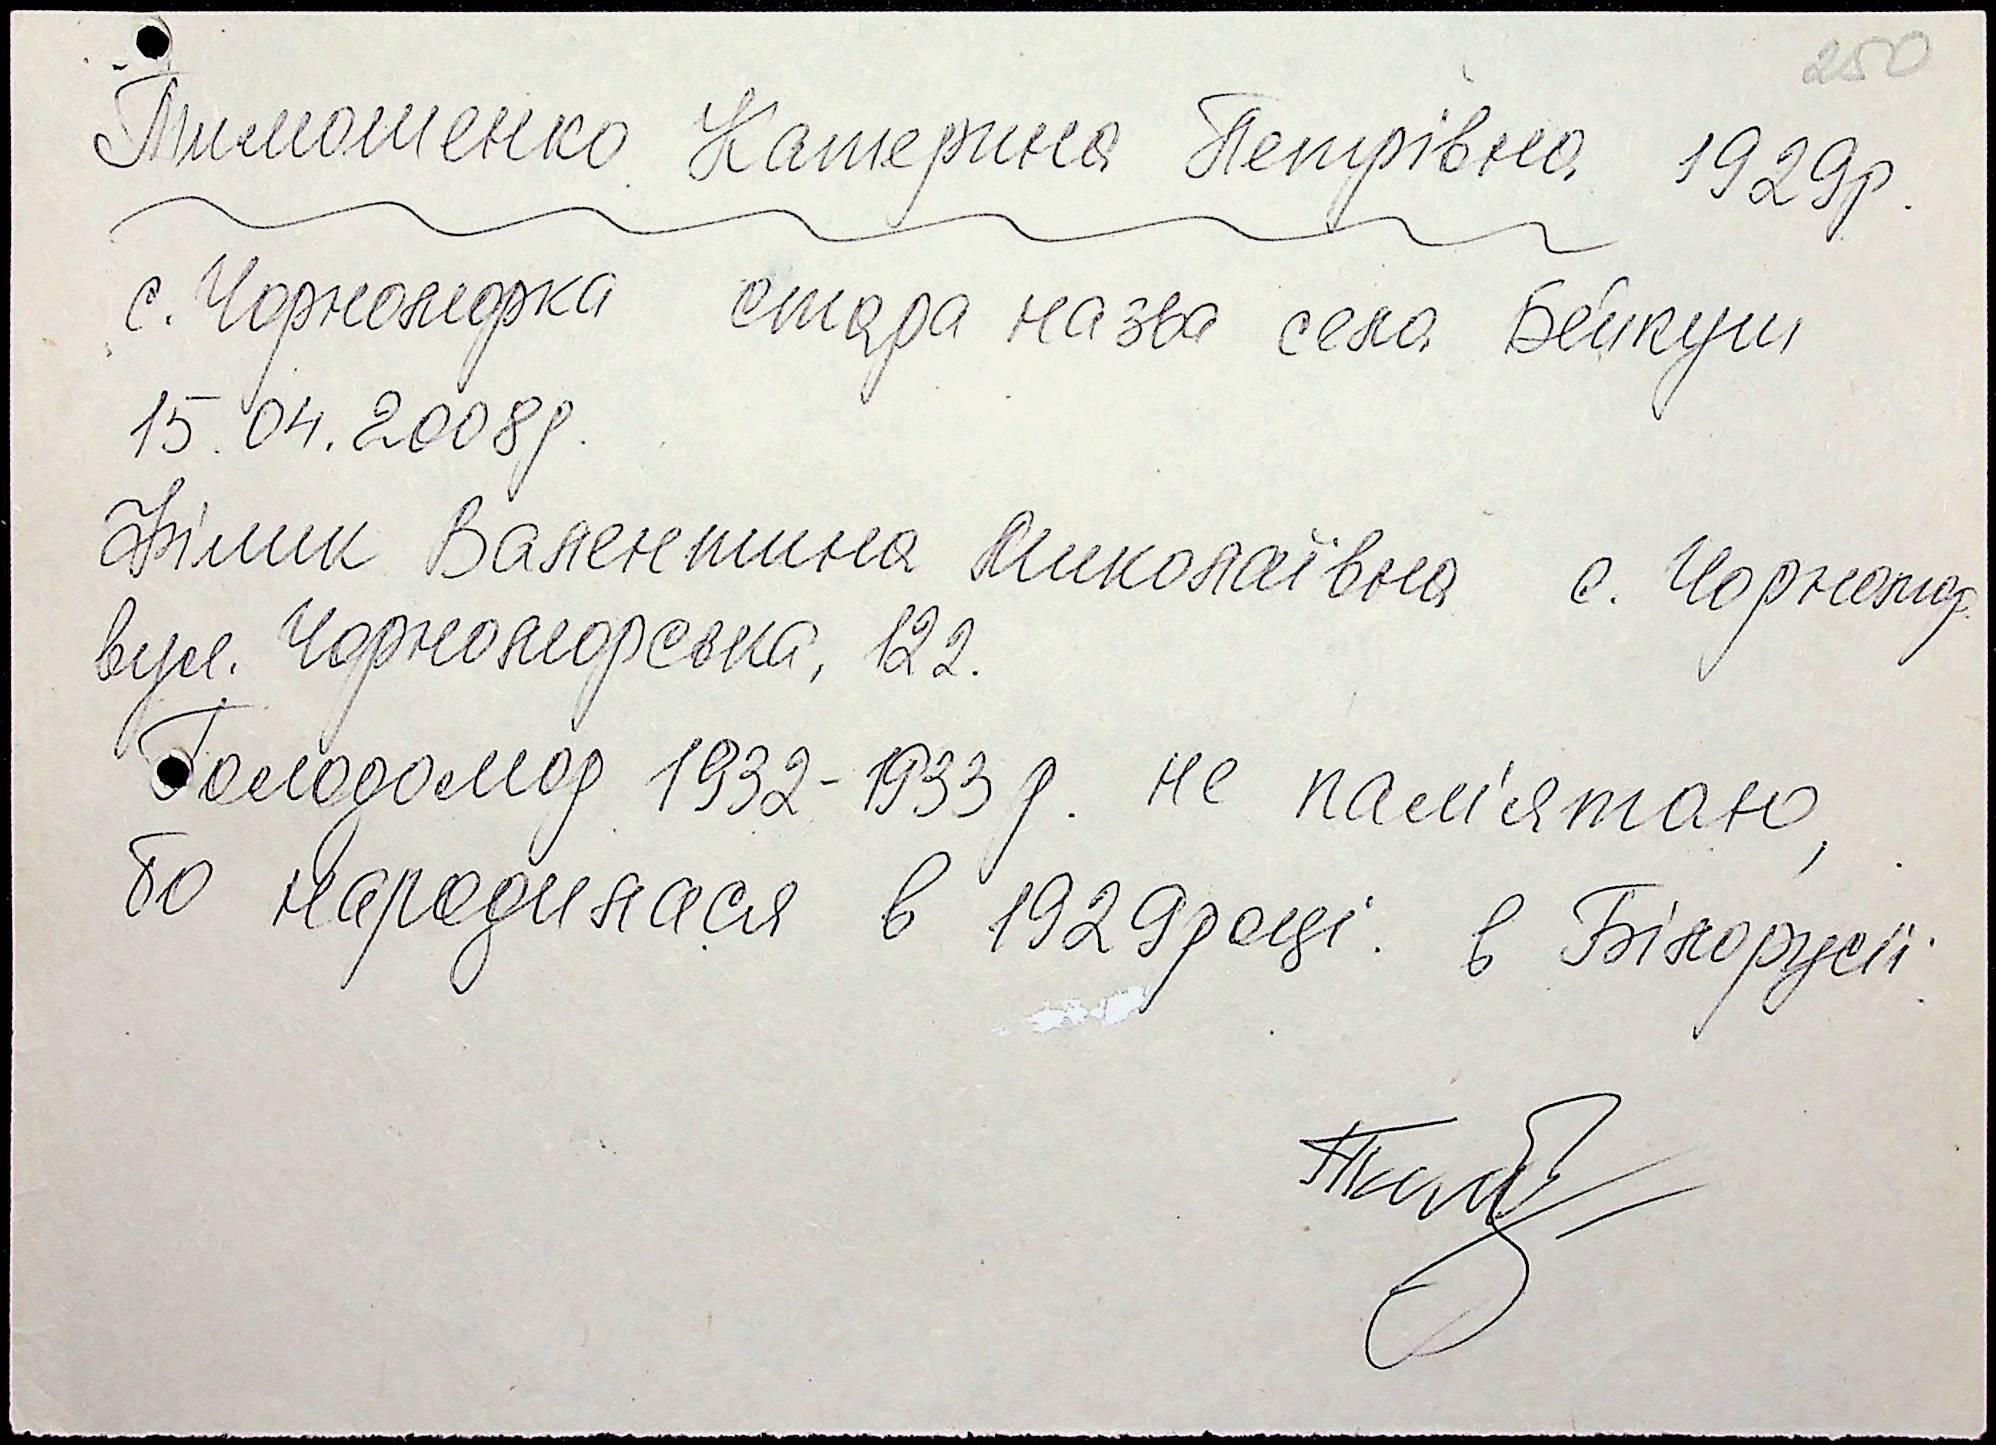 250
Тимошенко Катерина Петрівна 1929р.
с. Чорноморка стара назва села Бейкуш
15.04.2008р.
Філик Валентина Миколаївна с. Чорномор.
вул. Чорноморська, 122.
Голодомор 1932-1933 р. не пам'ятаю,
бо народилася в 1929 році. в Білорусії.